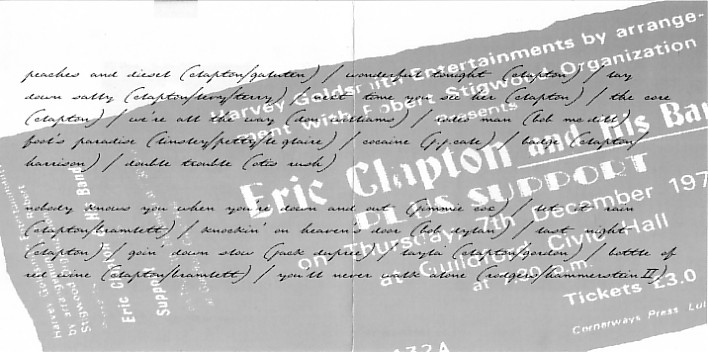 peaches and diesel (clapton/galuten) / wonderful tonight (clapton) / lay
down sally (clapton/levy/terry) / next time you see her (clapton) / the core
(clapton) / we're all the way (don williams) / rodeo man (bob mcdill)
fool's paradise (linsley/petty/le glaire) / cocaine (j.j.cale) / badge (clapton/
harrison) / double trouble (otis rush)
nobody knows you when you're down and out (jimmie cox) / let it rain
(clapton/bramlett) / knockin' on heaven's door (bob dylan) / last night
(clapton) / goin' down slow (jack dupree) / layla (clapton/gordon) / bottle of
red wine (clapton/bramlett) / you'll never walk alone (rodgers/hammerstein II)
Harvey Goldsmith Entertainments by arrange-
ment with Robert Stigwood Organization
presents
Eric Clapton and his Ban
PLUS SUPPORT
on Thursday, 7th December 197
at Guildford Civic Hall
at 8.00 p.m.
Tickets £3.0
Cornerways Press Lu
132A
Eric Clapton
Band
Support